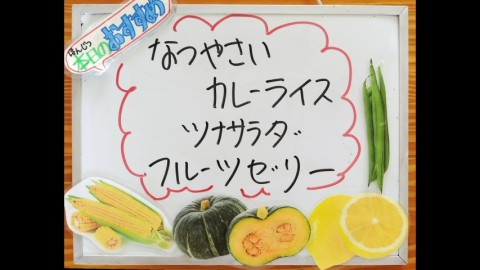 ほんじつ
本日のおすすめ
なつやさい
カレーライス
ツナサラダ
フルーツゼリー